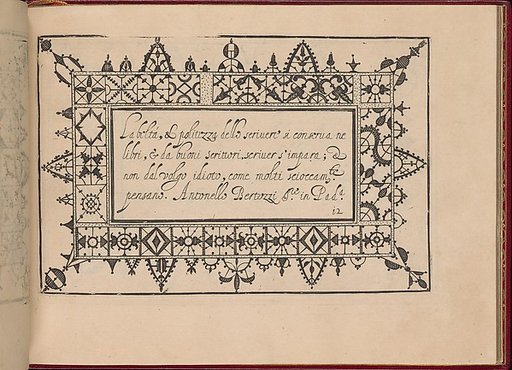 La beltà, & politezza dello scrivere si conserva ne
libri, & da buoni scrittori, scriver s'impara; &
non dal volgo idioto, come molti scioccam.te
pensano. Antonello Bertozzi S.re in Pad.a
12